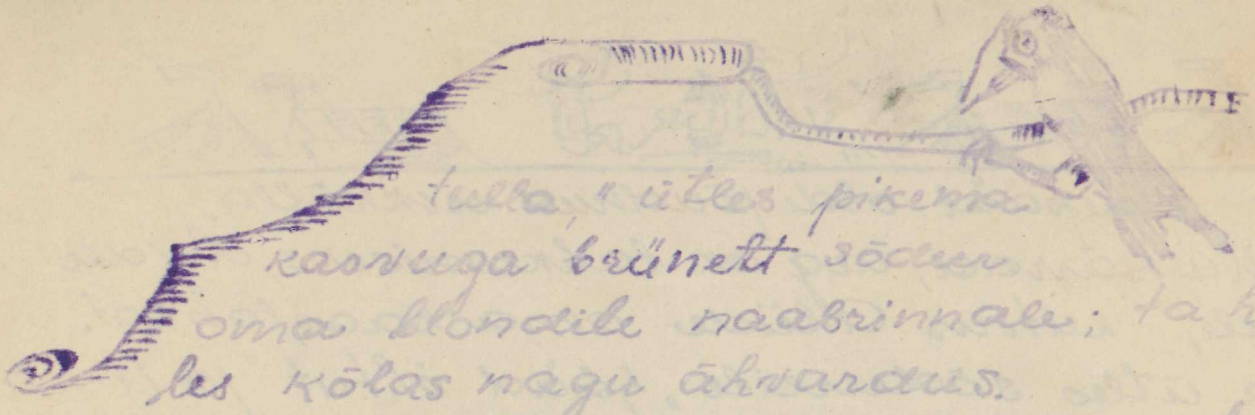 tulla," ütles pikema
kasvuga brünett sõdur
oma blondile naabrinnale; ta
les kõlas nagu ähvardus.